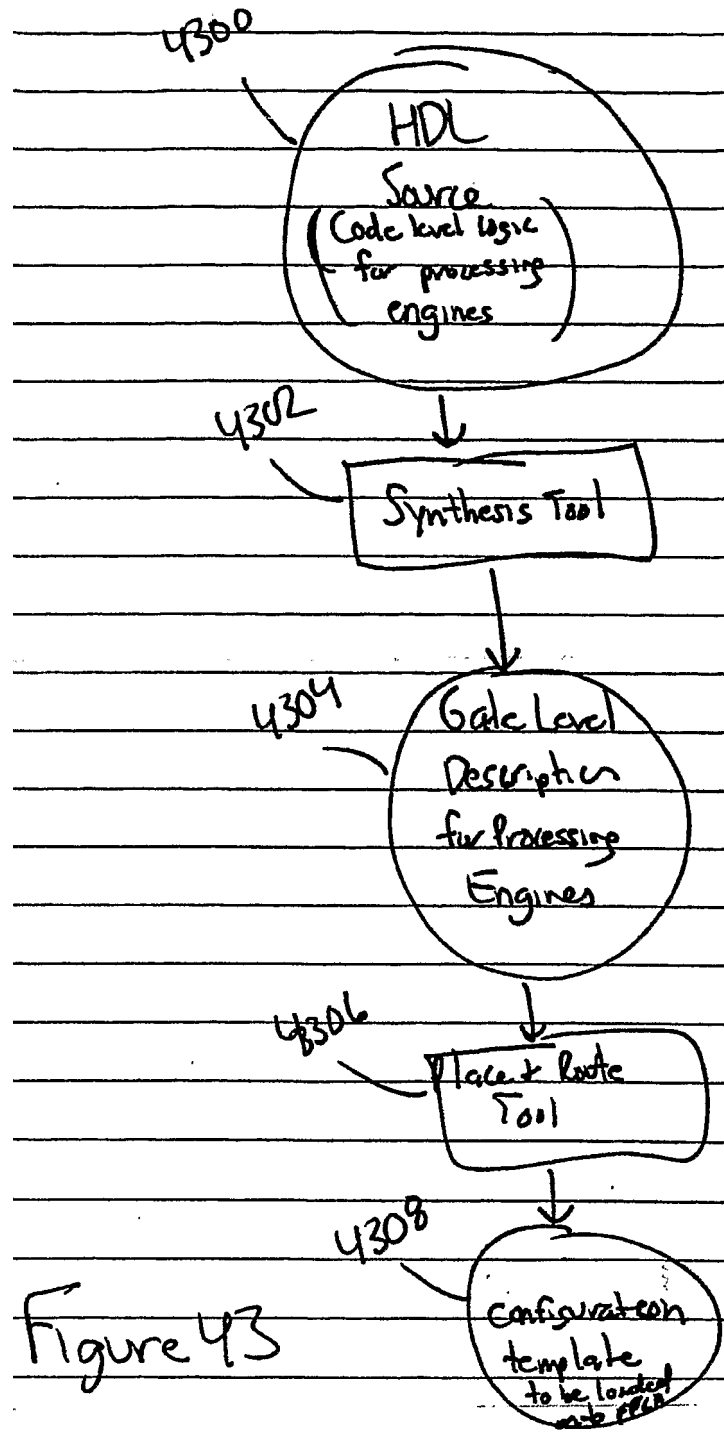 4300
HDL
Source
(Code level logic
for processing
engines)
4302
Synthesis Tool
4304
Gate Level
Description
for Processing
Engines
4306
Place & Route
Tool
4308
configuration
template
to be loaded
onto FPGA
Figure 43